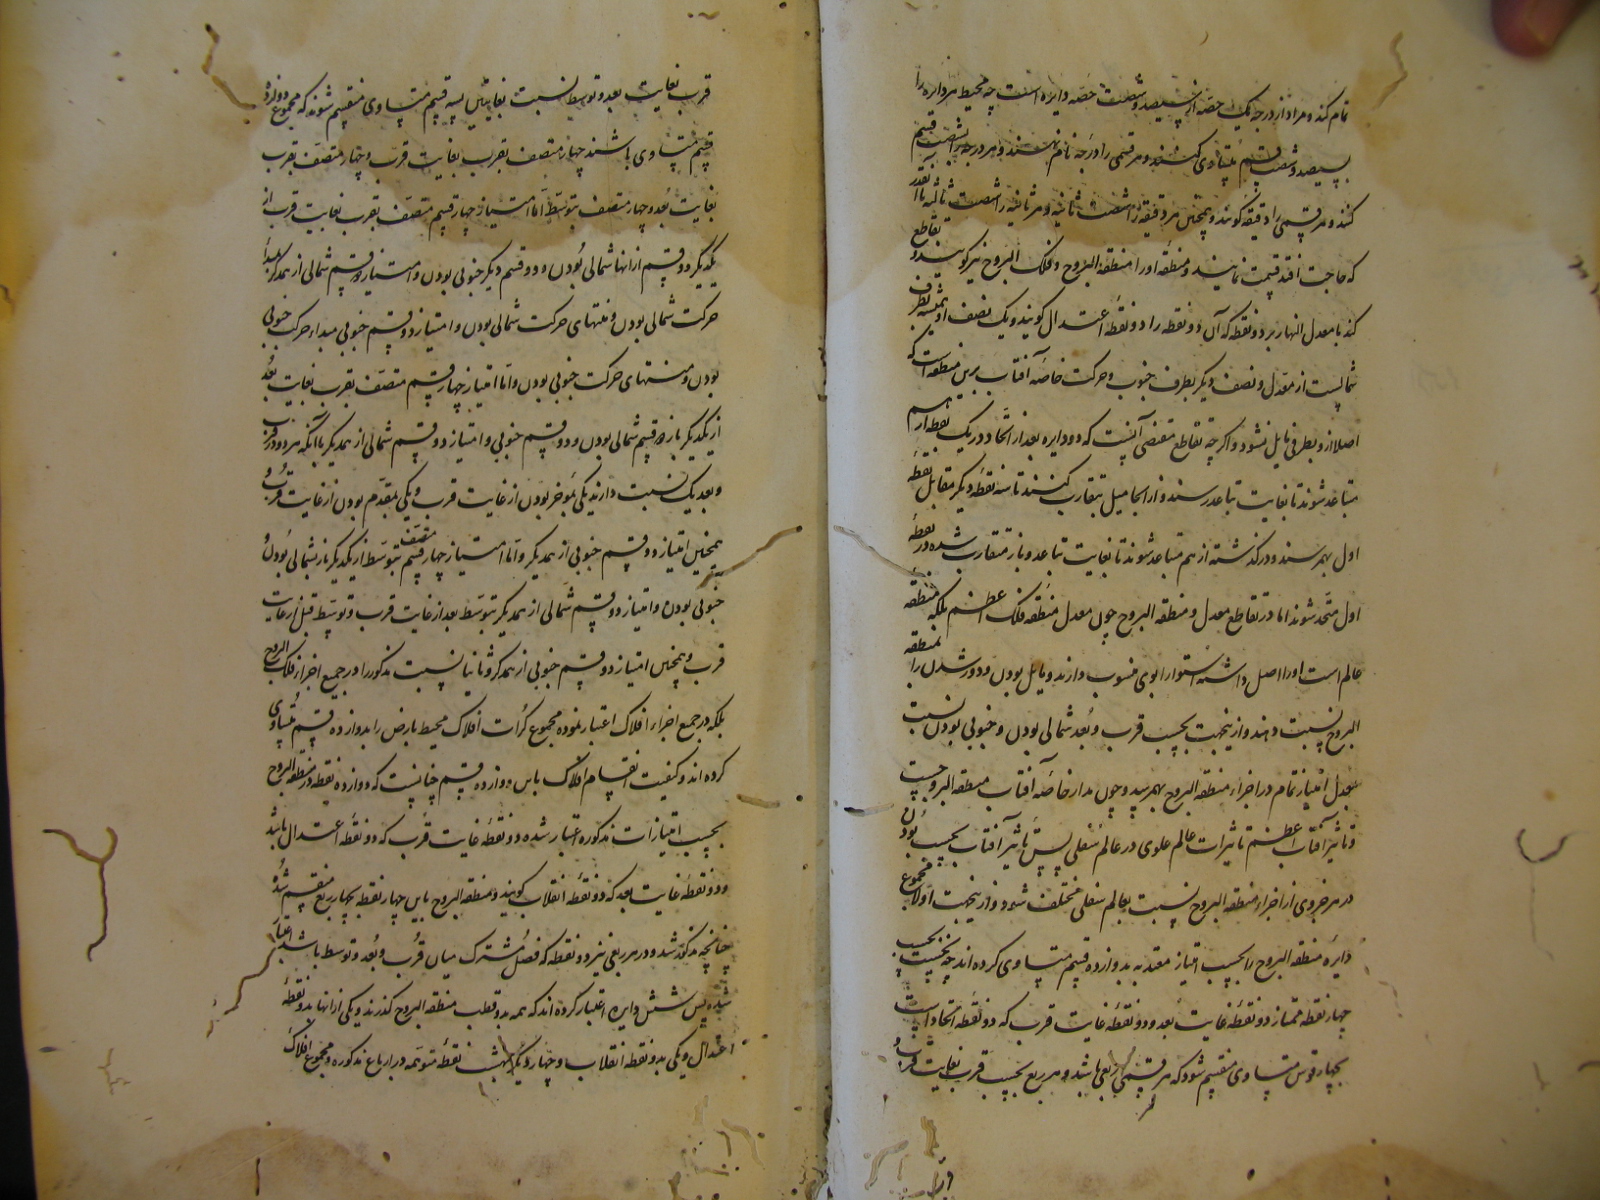 تمام کند و مراد از درجه یک حصه از سیصد و شصت حصه دایره است چه محیط هر دایره را
بسیصد و شصت قسم متساوی کنند و هر قسمی را درجه نام نهند و هر درجه را بشصت قسم
کنند و هر قسمی را دقیقه گویند و همچنین هر دقیقه را شصت ثانیه و هر ثانیه را شصت ثالثه تا آنقدر
که حاجت افتد قسمت نمایند و منطقه او را منطقة البروج و فلک البروج نیز گویند و تقاطع
کند با معدل النهار بر دو نقطه که آن دو نقطه را دو نقطه اعتدال گویند و یک نصف او همیشه بطرف
شمالیست از معدل و نصف دیگر بطرف جنوب و حرکت خاصه آفتاب برین منطقه است که
اصلا ازو بطرفی مایل نشود و اگرچه تقاطع مقتضی آنست که دو دایره بعد از اتحاد در یک نقطه از هم
متباعد شوند تا بغایت تباعد رسند و از انجا میل بتقارب کنند تا بنقطه دیگر مقابل نقطه
اول بهم رسند و درگذشته از هم متباعد شوند تا بغایت تباعد و باز متقارب شده در نقطه
اول متحد شوند اما در تقاطع معدل و منطقة البروج چون معدل منطقه فلک اعظم بلکه منطقه
عالم است او را اصل داشته استوار ابوی منسوب دارند و مایل بودن و دور شدن را بمنطقة
البروج نسبت دهند و ازینجهت بحسب قرب و بعد شمالی بودن و جنوبی بودن نسبت
بمعدل امتیاز تمام در اجزاء منطقة البروج بهم رسید و چون مدار خاصه آفتاب منطقة البروجست
و تاثیر آفتاب اعظم تاثیرات عالم علوی در عالم سفلی پس تاثیر آفتاب بحسب بودن
در هر جزوی از اجزاء منطقة البروج نسبت بعالم سفلی مختلف شود و ازینجهت اولا مجموع
دایره منطقة البروج را بحسب امتیاز معتد به بدوازده قسم متساوی کرده اند چه نخست بحسب
چهار نقطه ممتاز دو نقطه غایت بعد و دو نقطه غایت قرب که دو نقطه اتحاد است
بچهار قوس متساوی منقسم شود که هر قسمی ربعی باشد و هر ربع بحسب قرب بغایت قرب و
قرب بغایت بعد و توسط نسبت بغایتین بسه قسم متساوی منقسم شوند که مجموع دوازده
قسم متساوی باشند چهار متصف بقرب بغایت قرب و چهار متصف بقرب
بغایت بعد و چهار متصف بتوسط اما امتیاز چهار قسم متصف بقرب بغایت قرب از
یکدیگر دو قسم از انها شمالی بودن و دو قسم دیگر جنوبی بودن و امتیاز دو قسم شمالی از همدیگر مبداء
حرکت شمالی بودن و منتهای حرکت شمالی بودن و امتیاز دو قسم جنوبی مبداء حرکت جنوبی
بودن و منتهای حرکت جنوبی بودن و اما امتیاز چهار قسم متصف بقرب بغایت بعد
از یکدیگر باز دو قسم شمالی بودن و دو قسم جنوبی و امتیاز دو قسم شمالی از همدیگر با آنکه هر دو در قرب
و بعد یک نسبت دارند یکی بموخر بودن از غایت قرب و یکی بمقدم بودن از غایت قرب و
همچنین امتیاز دو قسم جنوبی از همدیگر و اما امتیاز چهار قسم متصف بتوسط از یکدیگر باز شمالی بودن و
جنوبی بودن و امتیاز دو قسم شمالی از همدیگر بتوسط بعد از غایت قرب و توسط قبل از غایت
قرب و همچنین امتیاز دو قسم جنوبی از همدیگر و ثانیا نسبت مذکور را در جمیع اجزاء فلک البروج
بلکه در جمیع اجزاء افلاک اعتبار نموده مجموع کرات افلاک محیط بارض را بدوازده قسم متساوی
کرده اند و کیفیت انقسام افلاک باین دوازده قسم چنانست که دوازده نقطه در منطقة البروج
بحسب امتیازات مذکوره اعتبار شده دو نقطه غایت قرب که دو نقطه اعتدال باشد
و دو نقطه غایت بعد که دو نقطه انقلاب گویند و منطقة البروج باین چهار نقطه بچهار ربع منقسم شده
چنانچه مذکور شد و در هر ربعی نیز دو نقطه که فصل مشترک میان قرب و بعد و توسط باشد اعتبار
شده پس شش دایره اعتبار کرده اند که همه بدو قطب منطقة البروج گذرند و یکی از انها بدو نقطه
اعتدال و یکی بدو نقطه انقلاب و چهار دیگر بهشت نقطه متوهمه در ارباع مذکوره و مجموع افلاک